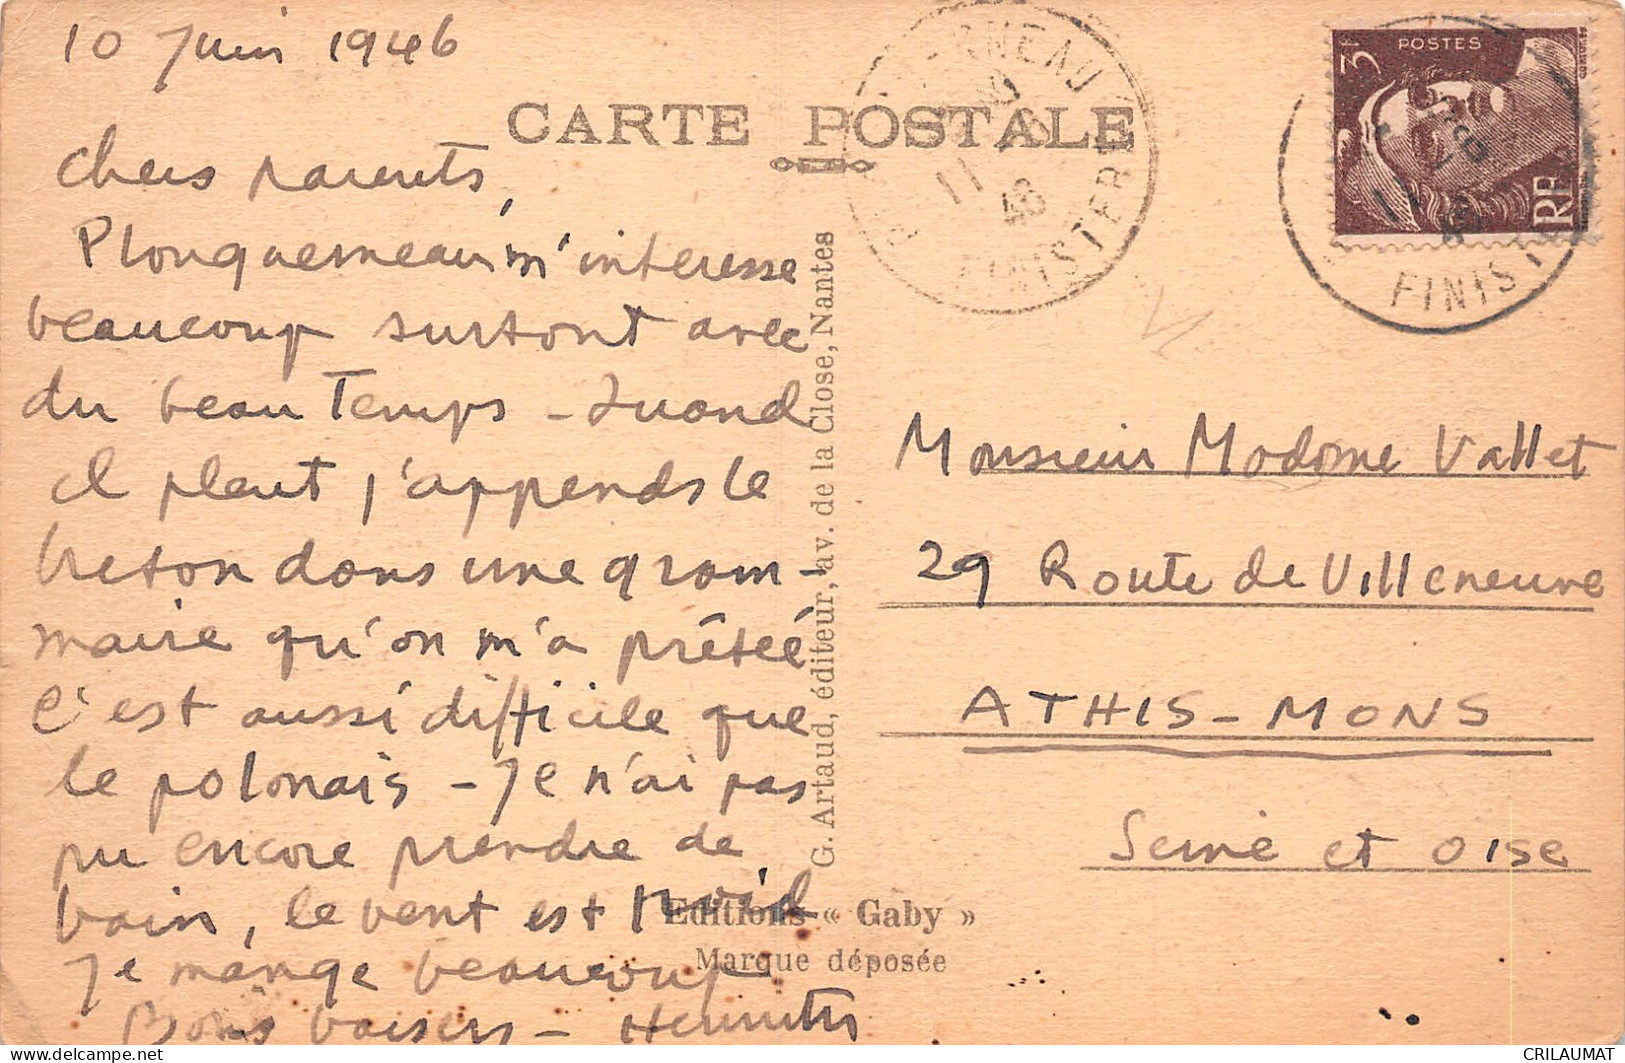 10 Juin 1946
CARTE POSTALE
Chers parents,
Plouguerneau m'interesse
beaucoup surtout avec
du beau Temps - Quand
il pleut j'apprends le
breton dans une gram-
maire qu'on m'a prêtéé
C'est aussi difficile que
le polonais - Je n'ai pas
pu encore prendre de
bain, le vent est froid
Je mange beaucoup
Bons baisers -
G. Artaud, éditeur, av. de la Close, Nantes
Editions « Gaby »
Marque déposée
POSTES
3F
RF
FINISTERE
11
FINIST
11
Monsieur Madame Vallet
29 Route de Villeneuve
ATHIS-MONS
Seine et Oise
CRILAUMAT